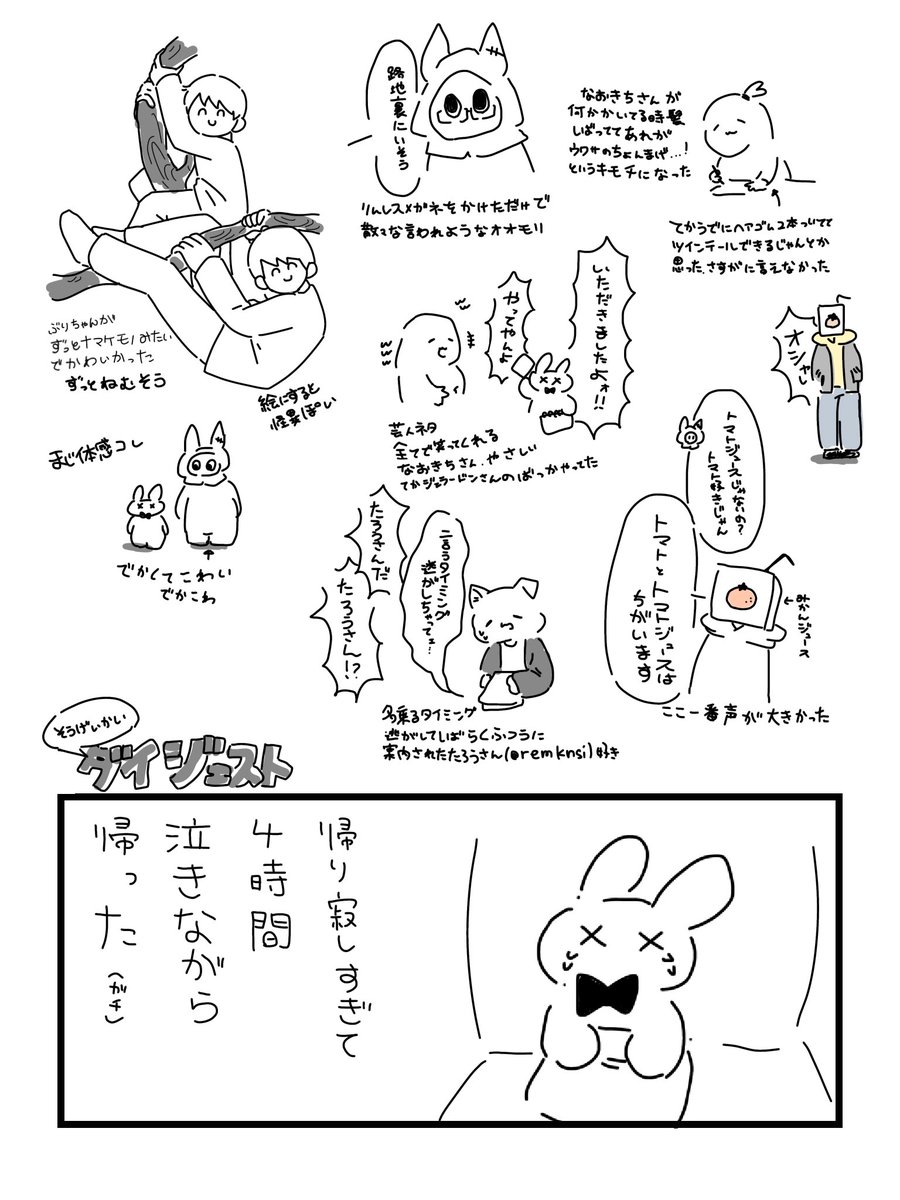 ぷりちゃんが
ずっとナマケモノみたい
でかわいかった
ずっとねむそう
絵にすると
怪異ぽい
路地裏にいそう
リムレスメガネをかけただけで
散々な言われようなオオモリ
なおきちさんが
何かかいてる時髪
しばっててあれが
ウワサのちょんまげ…!
というキモチになった
てかうでにヘアゴム2本ついてて
ツインテールできるじゃんとか
思った、さすがに言えなかった
いただきましたよォ!!
やってやんよ
芸人ネタ
全てで笑ってくれる
なおきちさん、やさしい
てかジェラードンさんのばっかやってた
オシャレ
まじ体感コレ
でかくてこわい
でかこわ
トマトジュースじゃないの?
トマト好きじゃん
トマトとトマトジュースは
ちがいます
みかんジュース
ここ一番声が大きかった
たろうさんだ
たろうさん!?
言うタイミング
逃がしちゃってェ…
名乗るタイミング
逃がしてしばらくふつうに
案内されたたろうさん(@remknsi)好き
そうげいかい
ダイジェスト
帰り寂しすぎて
4時間
泣きながら
帰った(ガチ)